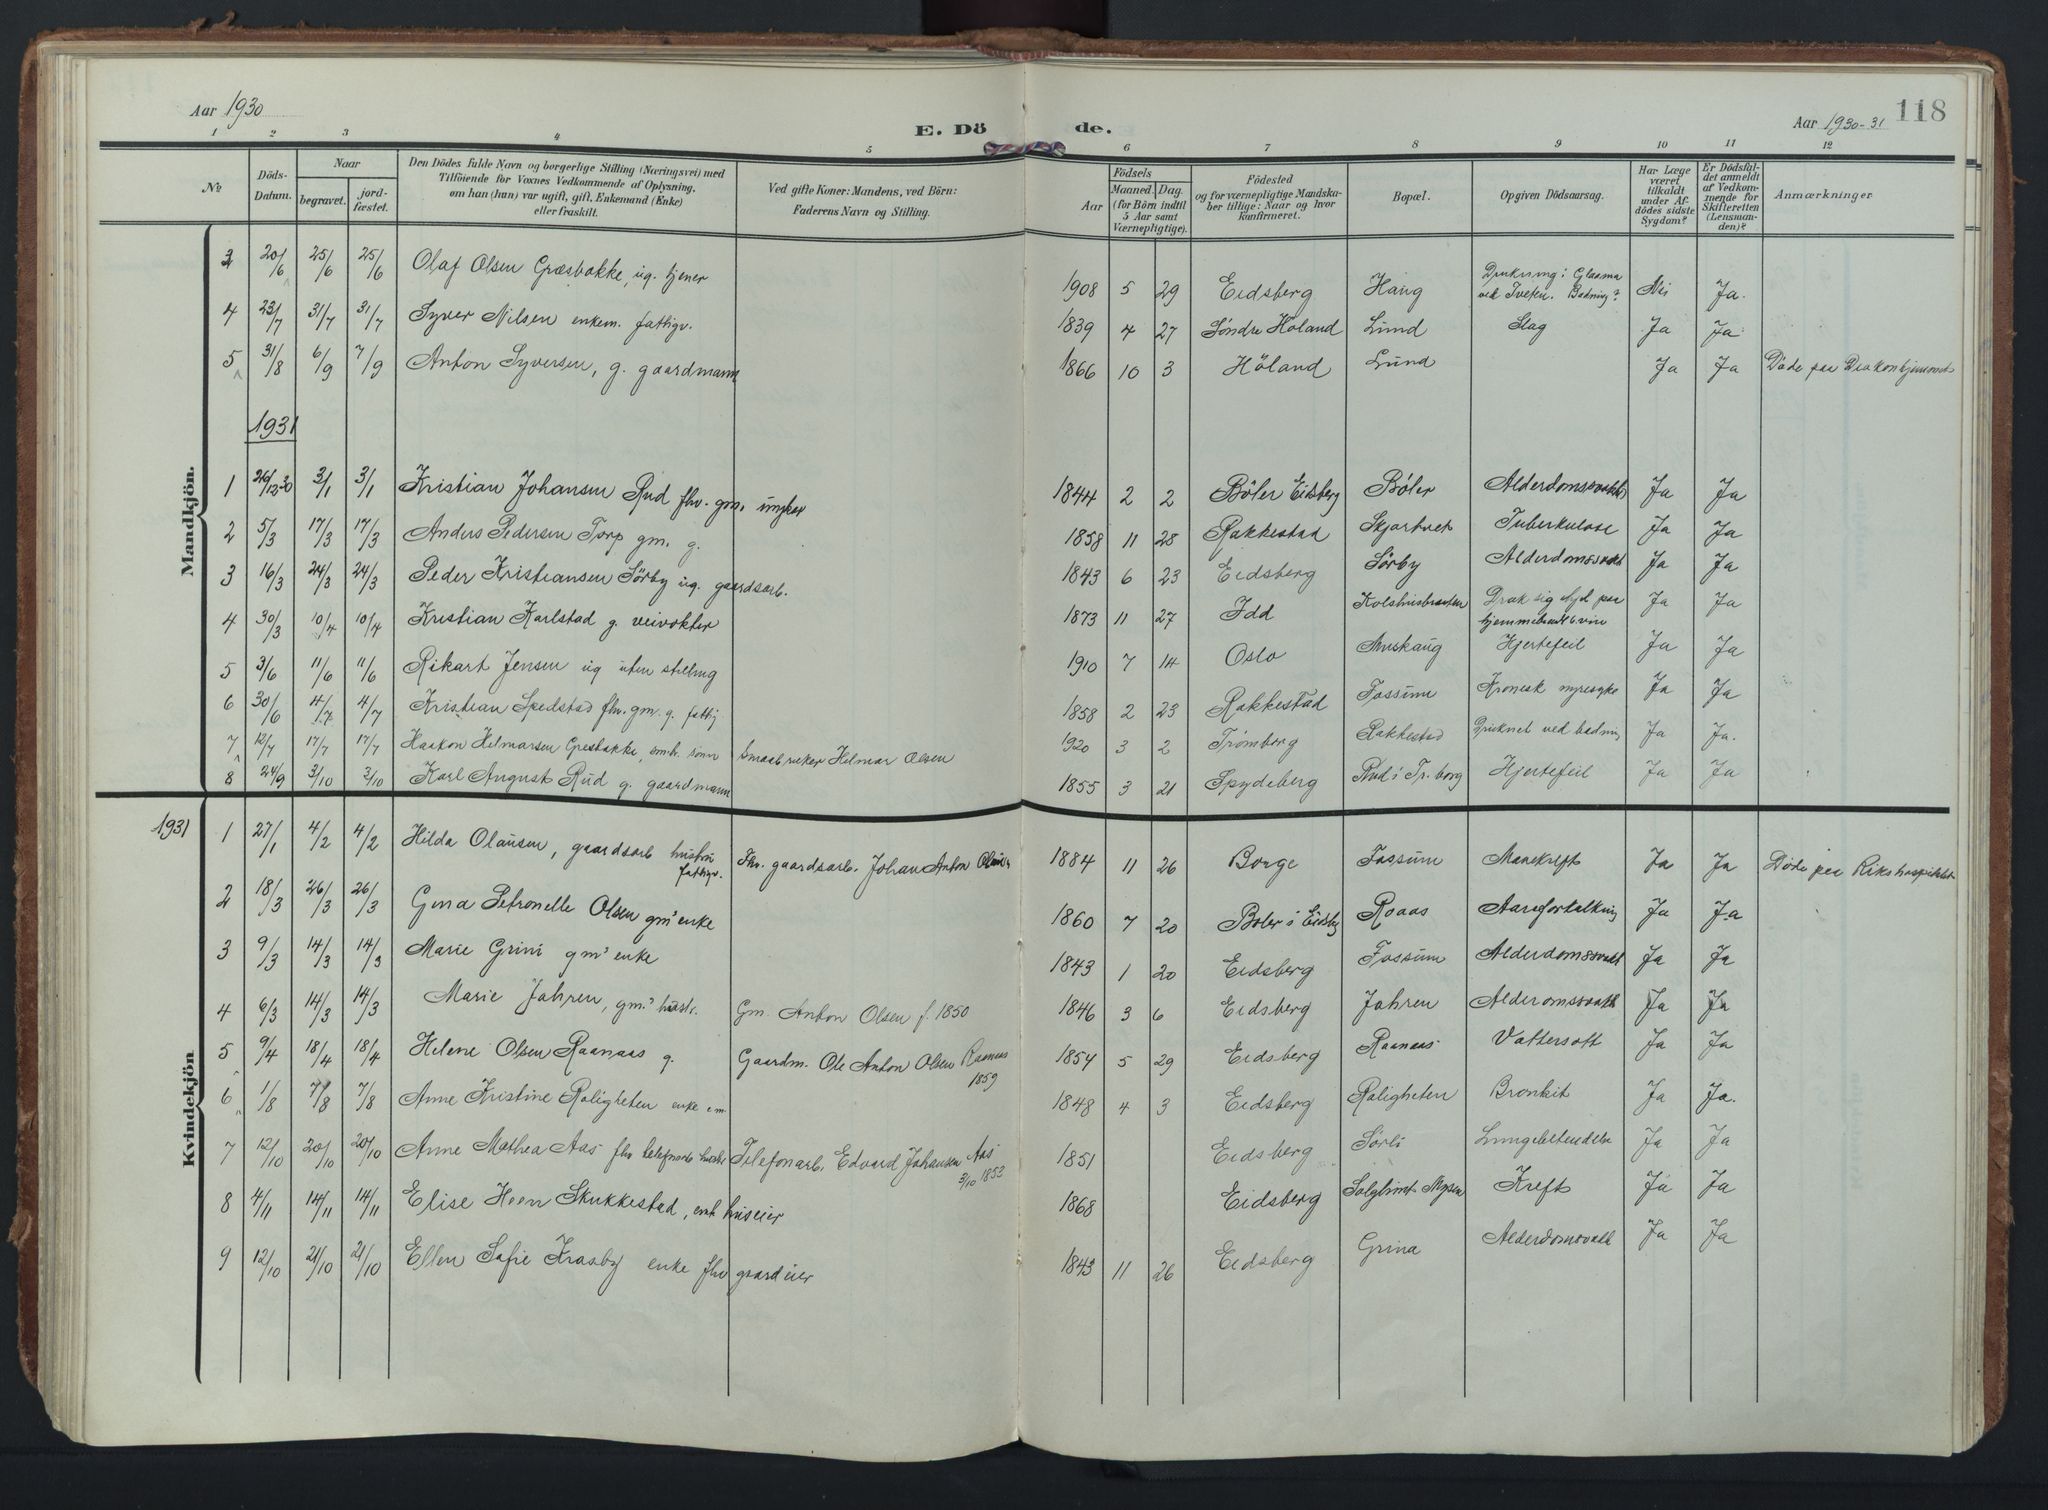 Aar 1930
E. Dö
de.
Aar 1930-31
118
1 2 3 4 5 6 7 8 9 10 11 12
№
Döds-Datum.
Naar
begravet.
jordfæstet.
Den Dödes fulde Navn og borgerlige Stilling (Næringsvei) med
Tilföiende for Voxnes Vedkommende af Oplysning,
om han (hun) var ugift, gift, Enkemand (Enke)
eller fraskilt.
Ved gifte Koner: Mandens, ved Börn:
Faderens Navn og Stilling.
Födsels
Aar
Maaned. Dag.
(for Börn indtil
5 Aar samt
Værnepligtige).
Födested
og for værnepligtige Mandskaber tillige: Naar og hvor
konfirmeret.
Bopæl.
Opgiven Dödsaarsag.
Har Læge været tilkaldt under Afdödes sidste Sygdom?
Er Dödsfaldet anmeldt af Vedkommende for Skifteretten (Lensmanden)?
Anmærkninger
Mandkjön.
3 20/6 25/6 25/6 Olaf Olsen Græsbakke, ug. tjener 1908 5 29 Eidsberg Haug Drukning i Glaama ved Tveten. Badning? Nei Ja.
4 23/7 31/7 31/7 Syver Nilsen enkem. fattigv. 1839 4 27 Söndre Höland Lund Slag Ja Ja
5 31/8 6/9 7/9 Anton Syversen, g. gaardmann 1866 10 3 Höland Lund Ja Ja Döde paa Diakonhjemmet
1931
1 26/12 30 3/1 3/1 Kristian Johansen Rud fhv. gm. ungkar 1844 2 2 Böler Eidsberg Böler Alderdomssvakh Ja Ja
2 5/3 17/3 17/3 Anders Pedersen Torp gm. g. 1858 11 28 Rakkestad Skjortvet Tuberkulose Ja Ja
3 16/3 24/3 24/3 Peder Kristiansen Sörby ug. gaardsarb. 1843 6 23 Eidsberg Sörby Alderdomssvakt Ja Ja
4 30/3 10/4 10/4 Kristian Karlstad g. veivokter 1873 11 27 Idd Kolshusbraaten Drak sig ihjel paa hjemmebrent vin Ja Ja
5 3/6 11/6 11/6 Rikart Jensen ug uten stilling 1910 7 14 Oslo Hjertefeil Ja Ja
6 30/6 4/7 4/7 Kristian Spedstad fhv. gm. g. fattig 1858 2 23 Rakkestad Fossum Kronisk nyresyke Ja Ja
7 12/7 17/7 17/7 Haakon Helmarsen Gresbakke, smbr. sönn Smaabruker Helmar Olsen 1920 3 2 Trömborg Rakkestad Druknet ved badning Ja Ja.
8 24/9 3/10 3/10 Karl August Rud g. gaardmann 1855 3 21 Spydeberg Rud i Tr.borg Hjertefeil Ja Ja
Kvindekjön
1931
1 27/1 4/2 4/2 Hilda Olausen, gaardsarb hustru fattigv. Fhv. gaardsarb. Johan Anton Olausen 1884 11 26 Borge Fossum Mavekreft Ja Ja Döde paa Rikshospitalet
2 18/3 26/3 26/3 Gina Petronelle Olsen gm's enke 1860 7 20 Boler i Eidsbg Raaas Aareforkalkning Ja Ja
3 9/3 14/3 14/3 Marie Grini gm's enke 1843 1 20 Eidsberg Fossum Alderdomssvakt Ja Ja
4 6/3 14/3 14/3 Marie Jahren, gm.s hustr. Gm. Anton Olsen f. 1850 1846 3 6 Eidsberg Jahren Alderomssvakh Ja Ja
5 9/4 18/4 18/4 Helene Olsen Raanaas g. Gaardm. Ole Anton Olsen Raanaas 1859 1854 5 29 Eidsberg Raanaas Vattersott Ja Ja
6 1/8 7/8 7/8 Anne Kristine Roligheten enke e.m. 1848 4 3 Eidsberg Roligheten Bronkit Ja Ja.
7 12/10 20/10 20/10 Anne Mathea Aas fhv telefonarb hustru Telefonarb. Edvard Johansen Aas 3/10 1853 1851 Eidsberg Sörli Lungebetendelse Ja Ja
8 4/11 14/11 14/11 Elise Heen Skukkestad, enk huseier 1868 Eidsberg Solglimt Mysen Kreft Ja Ja
9 12/10 21/10 21/10 Ellen Sofie Krosby enke fhv gaardeier 1843 11 26 Eidsberg Grina Alderdomsvakh Ja Ja